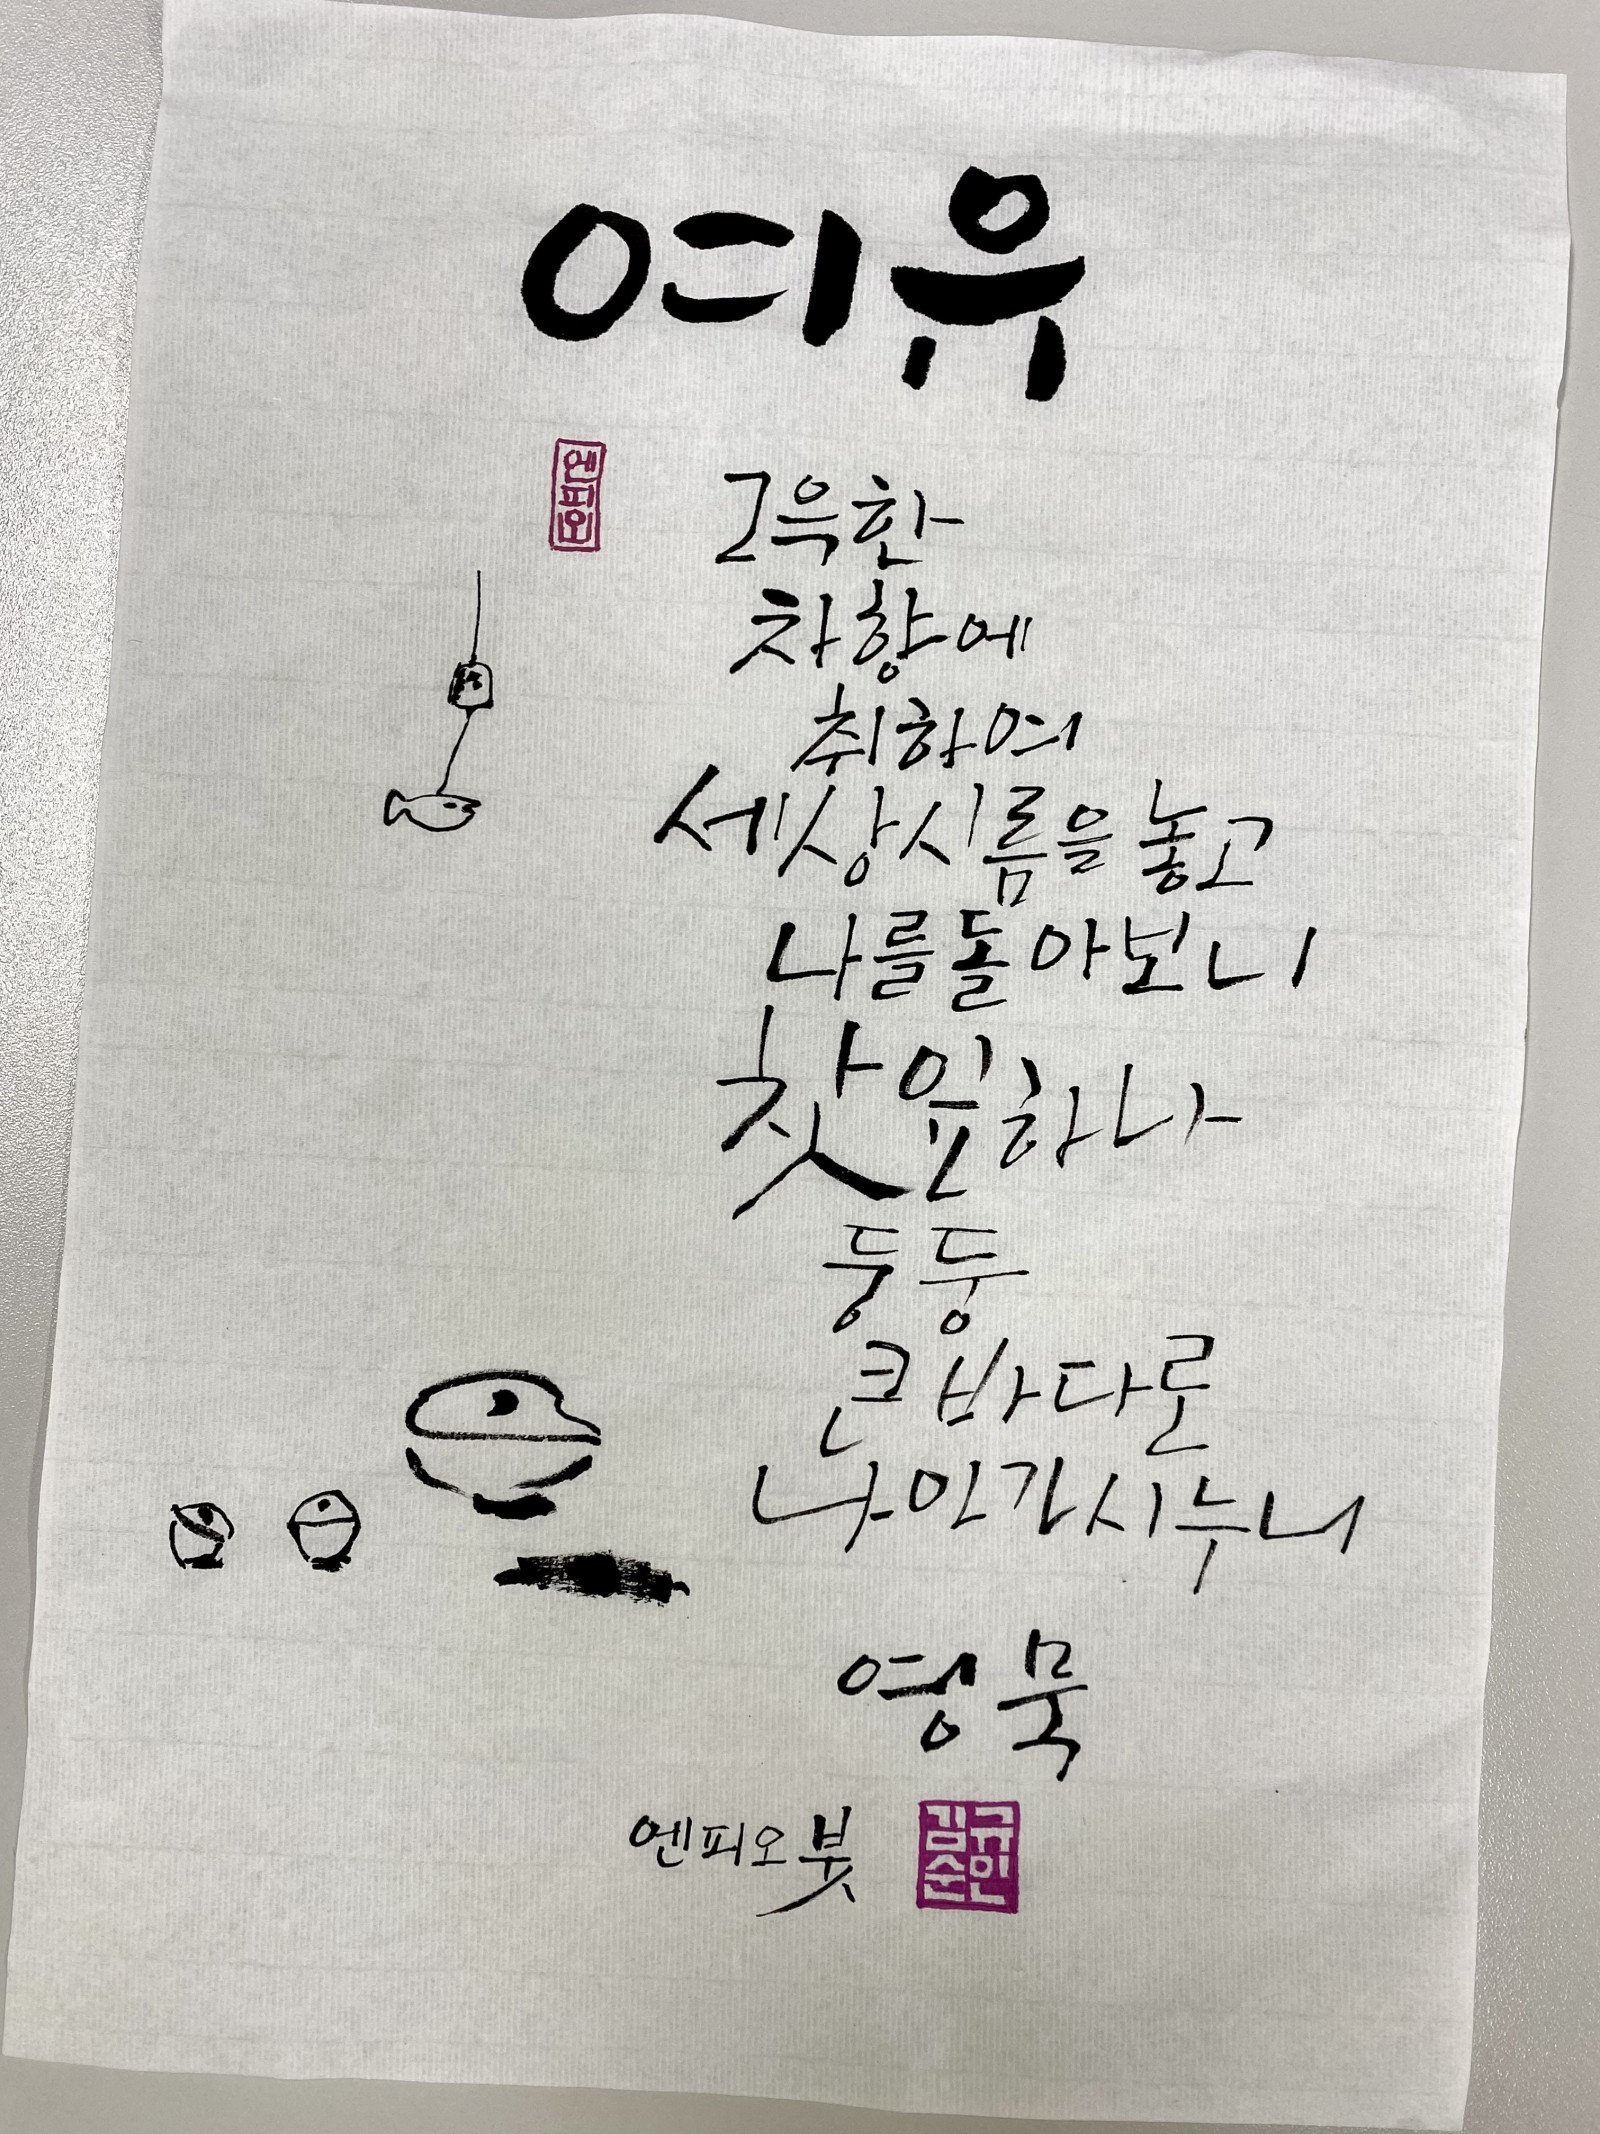 여유
엔피오
그윽한
차향에
취하여
세상시름을 놓고
나를돌아보니
찻잎하나
둥둥
큰바다로
나아가시누나
영묵
엔피오붓
김규
순인